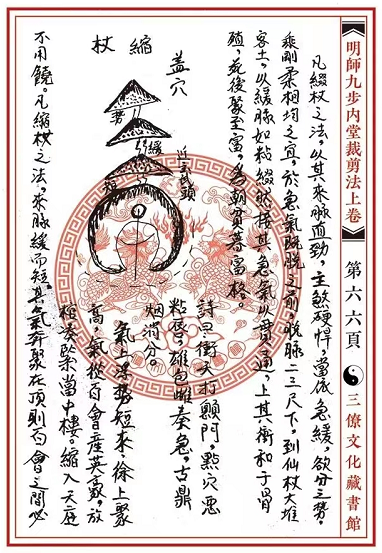 明師九步内堂裁剪法上卷
第六六頁
三僚文化藏書館
凡綴杖之法，以其來脉直勁，主煞硬悍，當依急緩，欲分三勢，
乘剛柔相均之宜，於急氣脱脱之前，脱脉二三尺下，到仙杖大堆
客土，以緩脉如粘綴然，擇其急氣以貫通，上其衝和于骨
殖，後聚至富，為朝貢富格。
詩曰：衝天打顖門，點穴惡
粘唇，雄苞雌奏急，古鼎
烟消分。
蓋穴
縮杖
勢
緩
氣上湧勢短來，徐上聚
高，氣從百會産英豪，放
棺湊緊當中樓。縮入天庭
不用饒。凡縮杖之法，來脉緩而短，其氣奔聚在頂則百會之間必